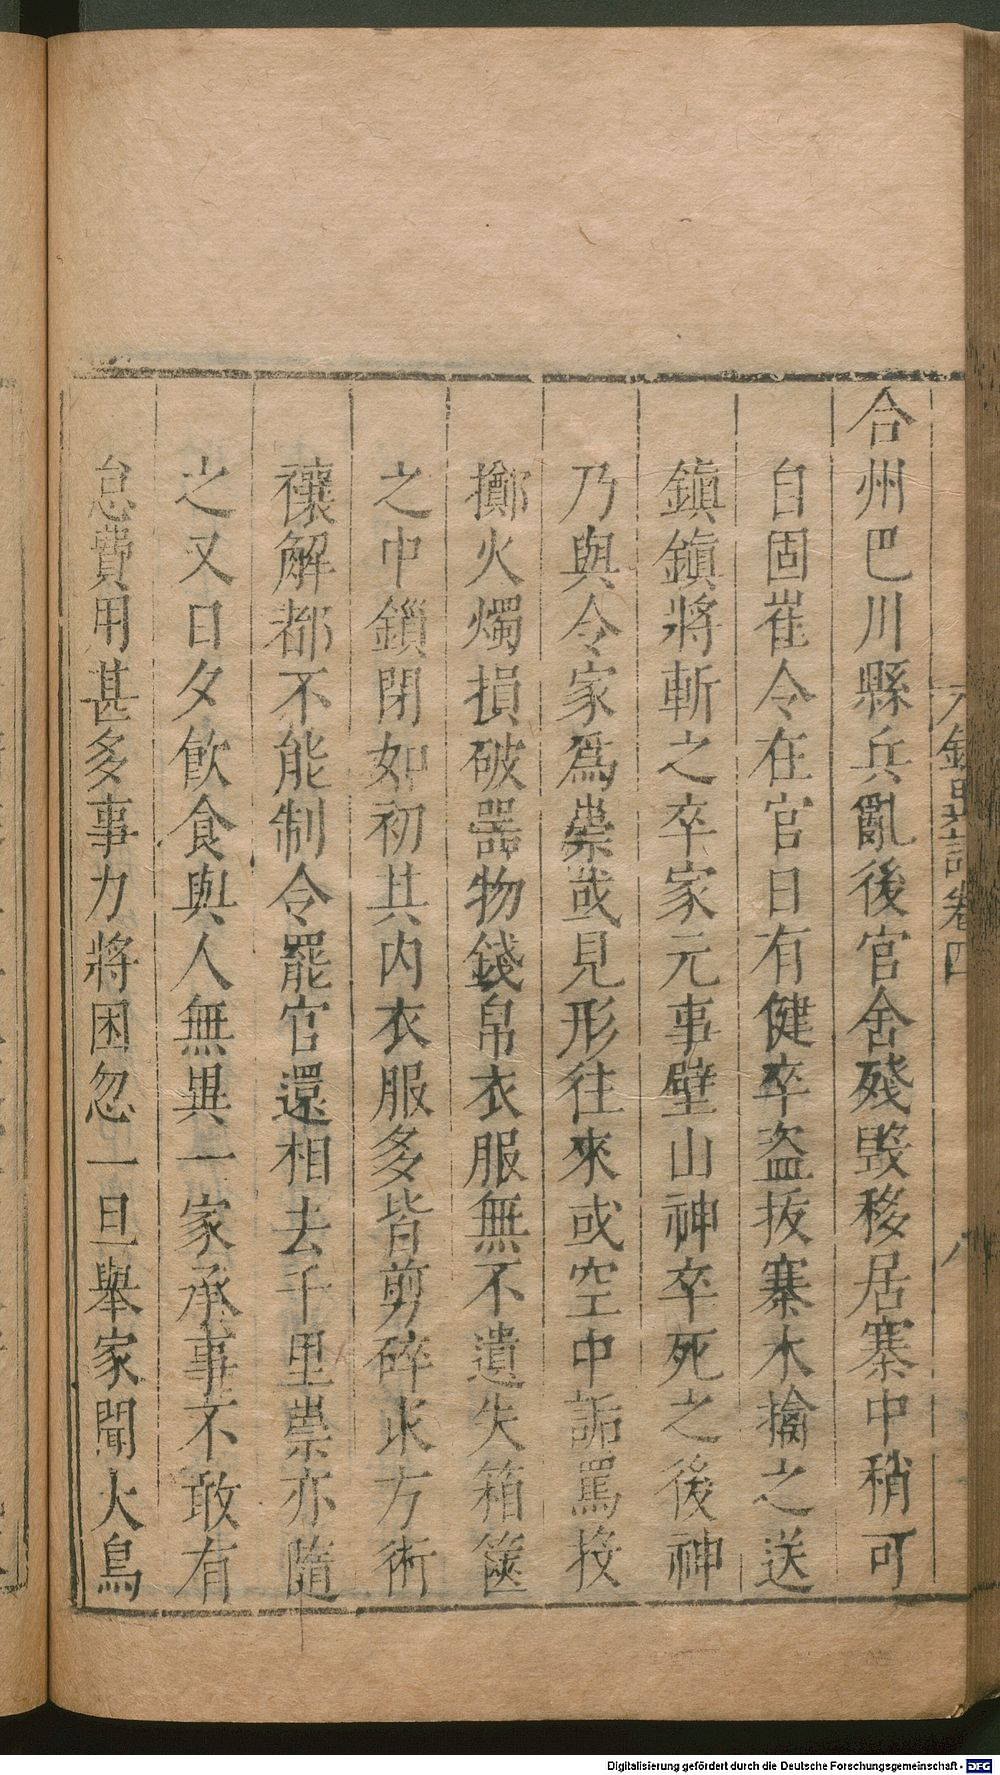 合州巴川縣兵亂後官舍殘毀移居寨中稍可
自固崔令在官日有健卒盜拔寨木擒之送
鎮鎮將斬之卒家元事壁山神卒死之後神
乃與令家爲祟或見形往來或空中詬罵投
擲火燭損破器物錢帛衣服無不遺失箱篋
之中鎖閉如初其內衣服多皆剪碎求方術
禳解都不能制令罷官還相去千里祟亦隨
之又日夕飲食與人無異一家承事不敢有
怠費用甚多事力將困忽一旦舉家聞大鳥
卷四
八
Digitalisierung gefördert durch die Deutsche Forschungsgemeinschaft - DFG